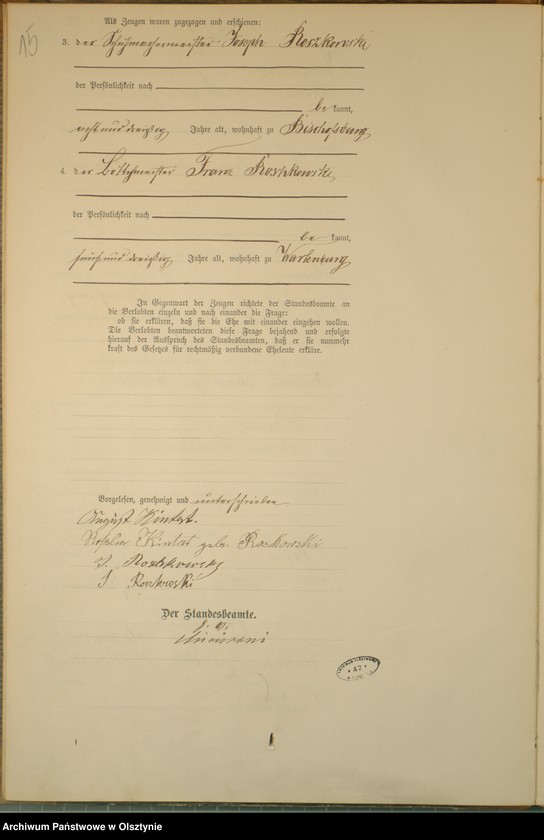 15
Als Zeugen waren zugezogen und erschienen:
3. der Schuhmachermeister Joseph Roszkowski
der Persönlichkeit nach
be kannt,
acht und dreißig Jahre alt, wohnhaft zu Bischofsburg
4. der Böttchermeister Franz Roszkowski,
der Persönlichkeit nach
be kannt,
fünf und dreißig Jahre alt, wohnhaft zu Wartenburg
In Gegenwart der Zeugen richtete der Standesbeamte an
die Verlobten einzeln und nach einander die Frage:
ob sie erklären, daß sie die Ehe mit einander eingehen wollen.
Die Verlobten beantworteten diese Frage bejahend und erfolgte
hierauf der Ausspruch des Standesbeamten, daß er sie nunmehr
kraft des Gesetzes für rechtmäßig verbundene Eheleute erkläre.
Vorgelesen, genehmigt und unterschrieben
August Kintat.
Kintat geb. Roskowski
J. Roszkowski
Roszkowski
Der Standesbeamte.
42
Archiwum Państwowe w Olsztynie